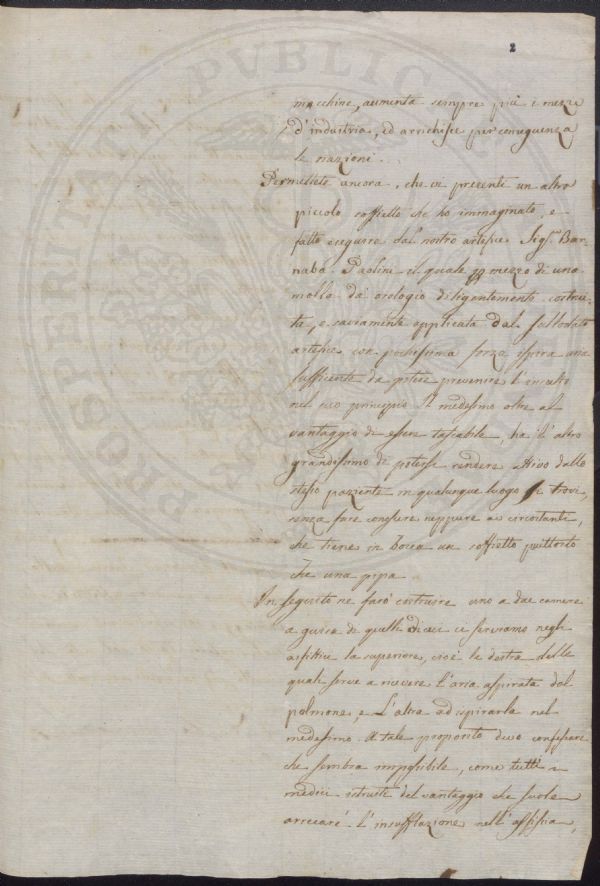 2
macchine, aumenta sempre più i mezzi
d'industria, ed arrichisce per conseguenza
le nazioni.
Permettete ancora, che vi presente un altro
piccolo soffietto che ho immaginato, e
fatto eseguire dal nostro artefice Sigr. Bar-
naba Paolini il quale per mezzo di una
molla da orologio diligentemente costrui-
ta, e saviamente applicata dal sullodato
artefice con pochissima forza ispira aria
sufficiente da potere prevenire l'insulto
nel suo principio. Il medesimo oltre al
vantaggio di essere tascabile, ha l'altro
grandissimo di potersi rendere attivo dallo
stesso paziente in qualunque luogo si trovi,
senza fare conoscere neppure ai circostanti,
che tiene in bocca un soffietto piuttosto
che una pipa
In seguito ne farò costruire uno a due camere
a guisa di quelli di cui ci serviamo negli
asfittici la superiore, cioè la destra delle
quali serve a ricevere l'aria aspirata dal
polmone, e l'altra ad ispirarla nel
medesimo. A tale proposito devo confessare
che sembra impossibile, come tutti i
medici istruiti del vantaggio che suole
arrecare l'insufflazione nell'asfissia,
PROSPERITATI PUBLICAE